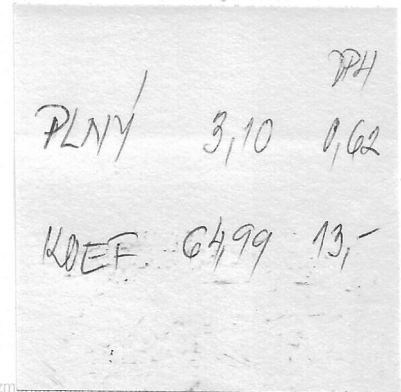 DPH
PLNÝ 3,10 0,62
KOEF. 64,99 13,-